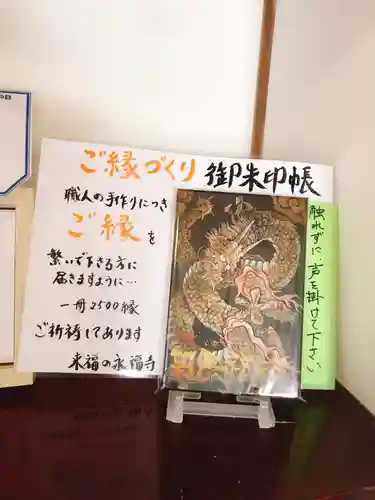 ご縁づくり 御朱印帳
職人の手作りにつき
ご縁を
繋いで下さる方に
届きますように…
一冊2500縁
ご祈祷してあります
来福の永福寺
触れずに…声を掛けて下さい